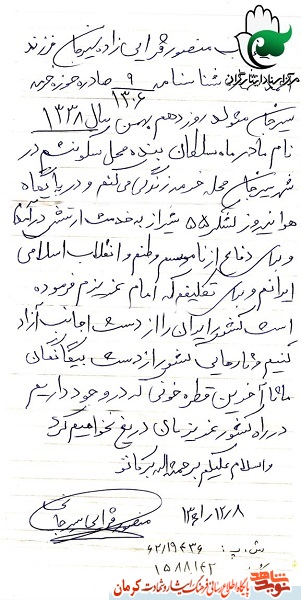 منصور قرایی زاده سیرجان فرزند
شناسنامه ۹ صادره حوزه حومه
۱۳۰۶
سیرجان متولد روز دهم بهمن سال ۱۳۳۸
نام مادر ماه سلطان بنده محل سکونتم در
شهر سیرجان محله خرمه زندگی می‌کنم و در پایگاه
هوانیروز لشکر ۵۵ شیراز به خدمت ارتش درآمدم
و برای دفاع از ناموسم وطنم و انقلاب اسلامی
ایرانم و برای تکلیفم که امام عزیزم فرموده
است کشور ایران را از دست اجانب آزاد
کنیم و رهایی کشور از دست بیگانگان
ما تا آخرین قطره خونی که در وجود داریم
در راه کشور عزیزمان دریغ نخواهیم کرد
والسلام علیکم و رحمة‌اله و برکاتو
۱۳۶۱/۱۲/۸
منصور قرایی سیرجانی
ش. پ: ۶۲/۱۹۴۳۶
۱۵۸۸۱۴۲
نوید شاهد
پایگاه اطلاع رسانی فرهنگ ایثار و شهادت کرمان